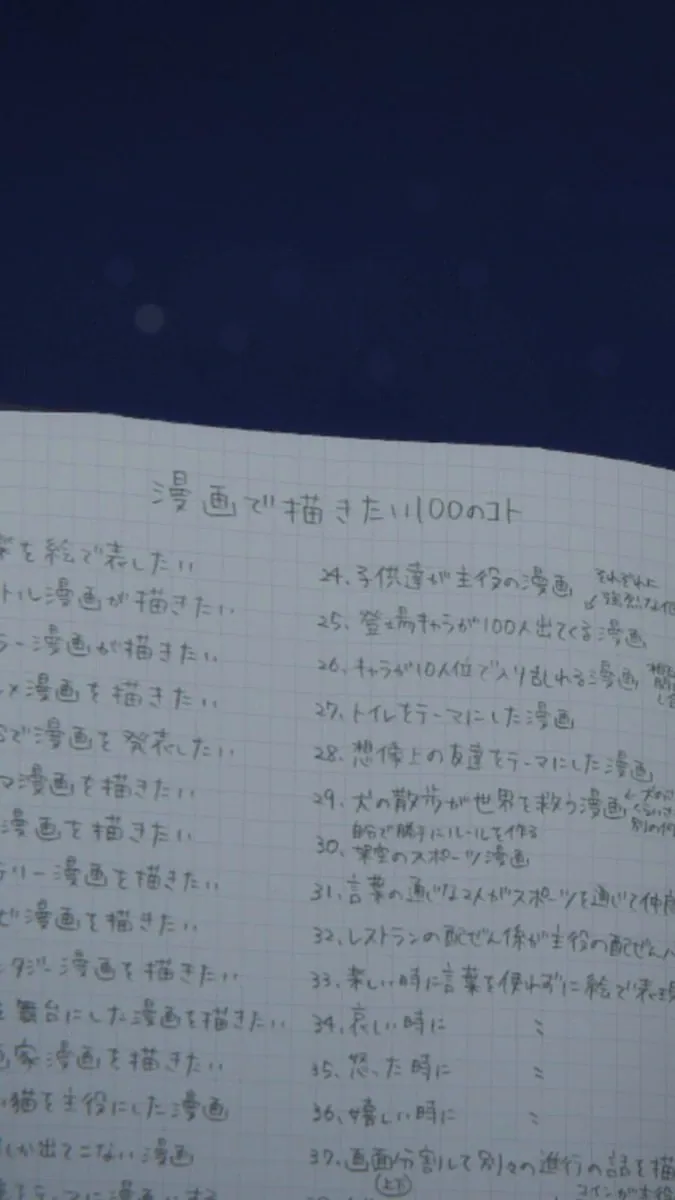 漫画で描きたい100のコト
を絵で表したい
トル漫画が描きたい
ラー漫画が描きたい
メ漫画を描きたい
で漫画を発表したい
マ漫画を描きたい
漫画を描きたい
テリー漫画を描きたい
漫画を描きたい
タジー漫画を描きたい
舞台にした漫画を描きたい
家漫画を描きたい
猫を主役にした漫画
しか出てこない漫画
24、子供達が主役の漫画 それぞれに
25、登場キャラが100人出てくる漫画
26、キャラが10人位で入り乱れる漫画
27、トイレをテーマにした漫画
28、想像上の友達をテーマにした漫画
29、犬の散歩が世界を救う漫画
自分で勝手にルールを作る
30、架空のスポーツ漫画
31、言葉の通じな2人がスポーツを通じて仲
32、レストランの配ぜん係が主役の配ぜん
33、楽しい時に言葉を使わずに絵で表現
34、哀しい時に 〃
35、怒った時に 〃
36、嬉しい時に 〃
37、画面分割して別々の進行の話を描
(上下)